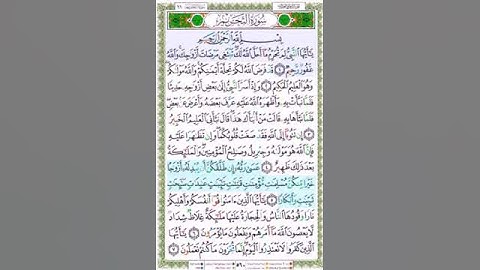 سُورَةُ التَّحْرِيمِ
بِسْمِ ٱللَّهِ ٱلرَّحْمَٰنِ ٱلرَّحِيمِ
يَٰٓأَيُّهَا ٱلنَّبِيُّ لِمَ تُحَرِّمُ مَآ أَحَلَّ ٱللَّهُ لَكَ تَبْتَغِي مَرْضَاتَ أَزْوَٰجِكَ وَٱللَّهُ
غَفُورٌ رَّحِيمٌ ١ قَدْ فَرَضَ ٱللَّهُ لَكُمْ تَحِلَّةَ أَيْمَٰنِكُمْ وَٱللَّهُ مَوْلَىٰكُمْ
وَهُوَ ٱلْعَلِيمُ ٱلْحَكِيمُ ٢ وَإِذْ أَسَرَّ ٱلنَّبِيُّ إِلَىٰ بَعْضِ أَزْوَٰجِهِ حَدِيثًا
فَلَمَّا نَبَّأَتْ بِهِ وَأَظْهَرَهُ ٱللَّهُ عَلَيْهِ عَرَّفَ بَعْضَهُ وَأَعْرَضَ عَنۢ بَعْضٍ
فَلَمَّا نَبَّأَهَا بِهِ قَالَتْ مَنْ أَنۢبَأَكَ هَٰذَا قَالَ نَبَّأَنِيَ ٱلْعَلِيمُ ٱلْخَبِيرُ
٣ إِن تَتُوبَآ إِلَى ٱللَّهِ فَقَدْ صَغَتْ قُلُوبُكُمَا وَإِن تَظَٰهَرَا عَلَيْهِ
فَإِنَّ ٱللَّهَ هُوَ مَوْلَىٰهُ وَجِبْرِيلُ وَصَٰلِحُ ٱلْمُؤْمِنِينَ وَٱلْمَلَٰٓئِكَةُ
بَعْدَ ذَٰلِكَ ظَهِيرٌ ٤ عَسَىٰ رَبُّهُ إِن طَلَّقَكُنَّ أَن يُبْدِلَهُ أَزْوَٰجًا
خَيْرًا مِّنكُنَّ مُسْلِمَٰتٍ مُّؤْمِنَٰتٍ قَٰنِتَٰتٍ تَٰٓئِبَٰتٍ عَٰبِدَٰتٍ سَٰٓئِحَٰتٍ
ثَيِّبَٰتٍ وَأَبْكَارًا ٥ يَٰٓأَيُّهَا ٱلَّذِينَ ءَامَنُوا قُوٓا أَنفُسَكُمْ وَأَهْلِيكُمْ
نَارًا وَقُودُهَا ٱلنَّاسُ وَٱلْحِجَارَةُ عَلَيْهَا مَلَٰٓئِكَةٌ غِلَاظٌ شِدَادٌ
لَّا يَعْصُونَ ٱللَّهَ مَآ أَمَرَهُمْ وَيَفْعَلُونَ مَا يُؤْمَرُونَ ٦ يَٰٓأَيُّهَا
ٱلَّذِينَ كَفَرُوا لَا تَعْتَذِرُوا ٱلْيَوْمَ إِنَّمَا تُجْزَوْنَ مَا كُنتُمْ تَعْمَلُونَ ٧
٥٦٠